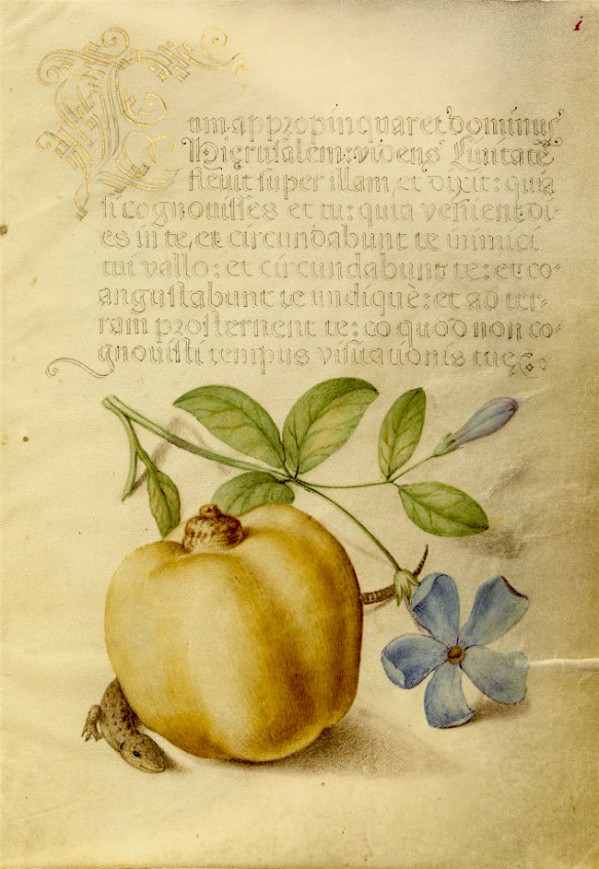 1
Cum appropinquaret dominus
Hierusalem: videns Ciuitatē
fleuit super illam, et dixit: quia
si cognouisses et tu: quia venient di-
es in te, et circundabunt te inimici
tui vallo: et circundabunt te: et co-
angustabunt te undiquè: et ad ter-
ram prosternent te: eo quod non co-
gnouisti tempus visitationis tuę.